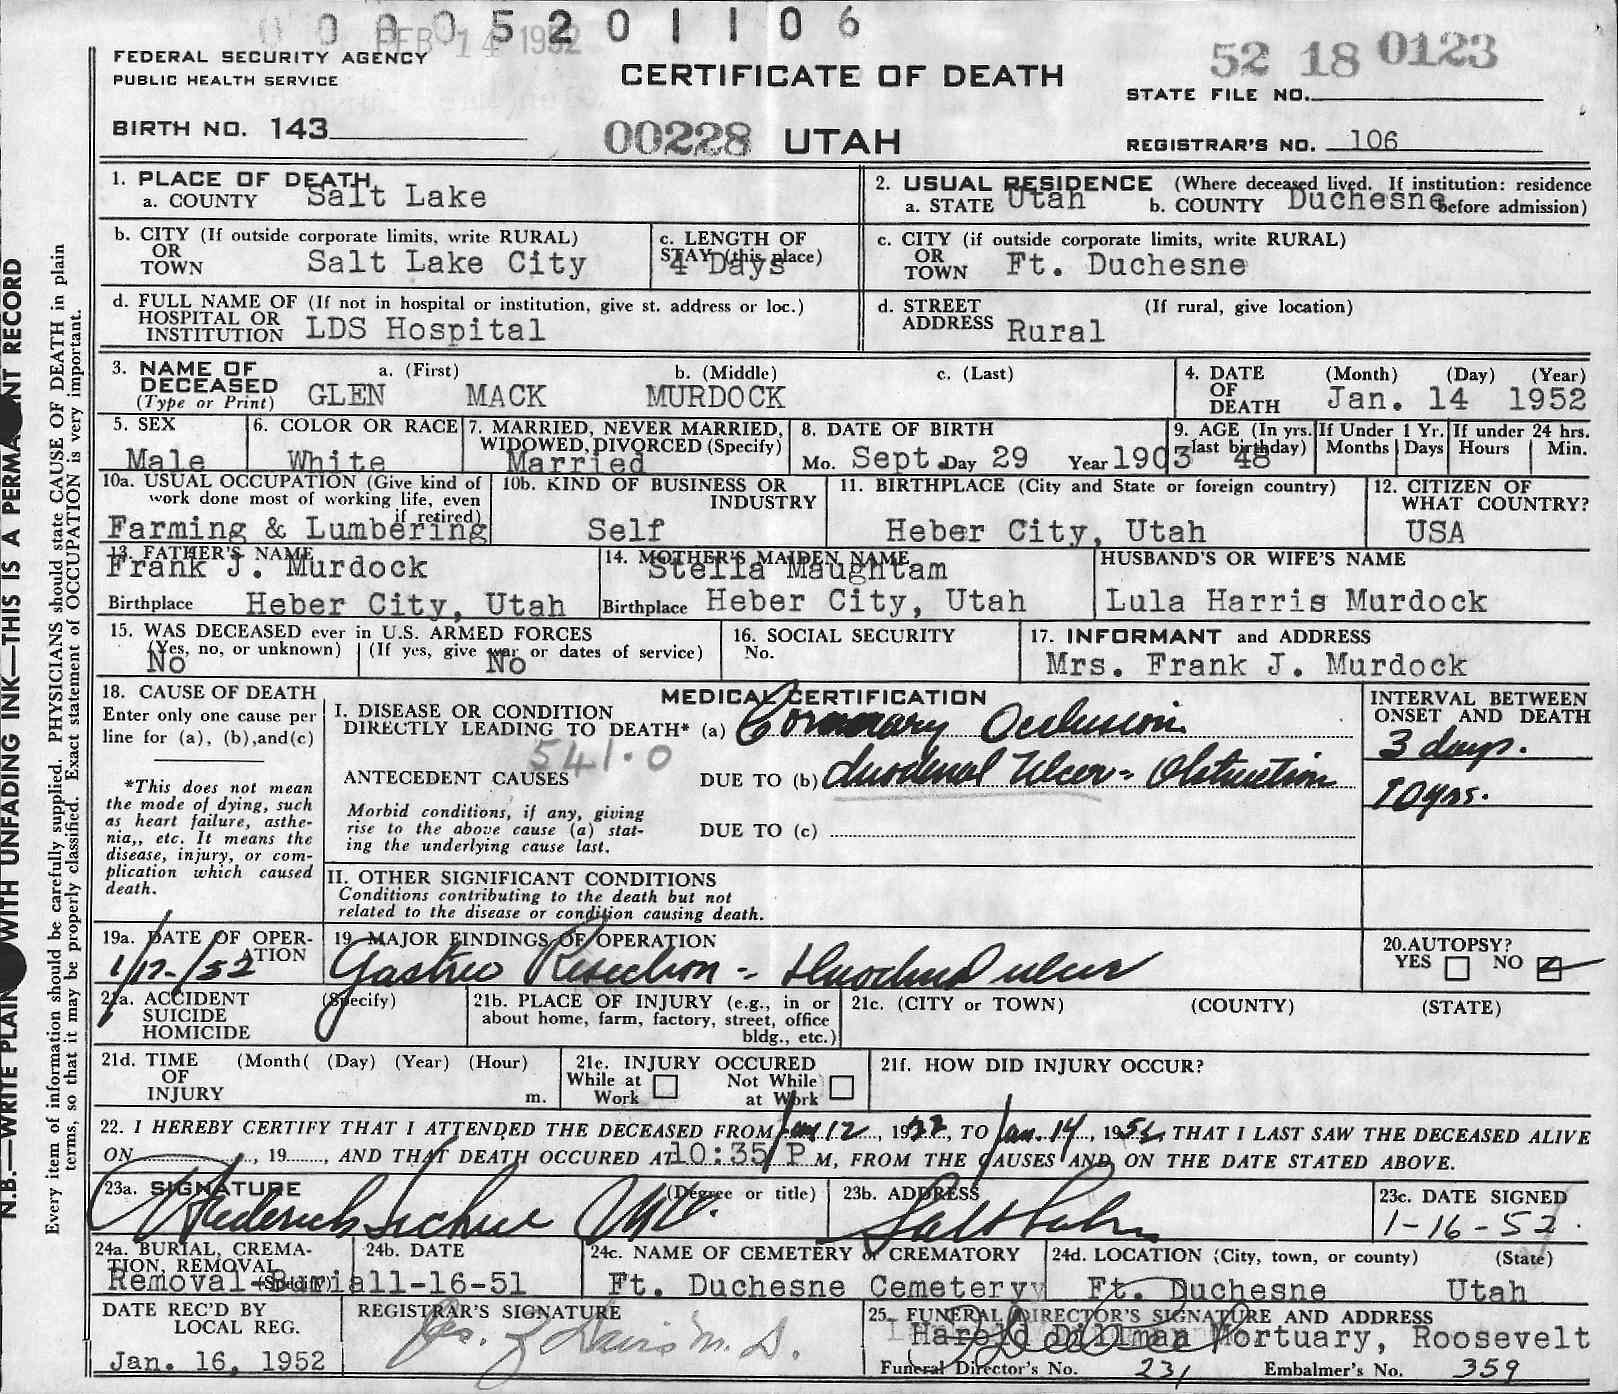 0 0 0 0 5 2 0 1 1 0 6
FEB 14 1952
FEDERAL SECURITY AGENCY
PUBLIC HEALTH SERVICE
CERTIFICATE OF DEATH
52 18 0123
STATE FILE NO.
BIRTH NO. 143
00228 UTAH
REGISTRAR'S NO. 106
1. PLACE OF DEATH
a. COUNTY Salt Lake
2. USUAL RESIDENCE (Where deceased lived. If institution: residence before admission)
a. STATE Utah b. COUNTY Duchesne
b. CITY (If outside corporate limits, write RURAL)
OR
TOWN Salt Lake City
c. LENGTH OF
STAY (this place)
4 Days
c. CITY (if outside corporate limits, write RURAL)
OR
TOWN Ft. Duchesne
d. FULL NAME OF (If not in hospital or institution, give st. address or loc.)
HOSPITAL OR
INSTITUTION LDS Hospital
d. STREET (If rural, give location)
ADDRESS Rural
3. NAME OF
DECEASED
(Type or Print)
a. (First) b. (Middle) c. (Last)
GLEN MACK MURDOCK
4. DATE
OF
DEATH
(Month) (Day) (Year)
Jan. 14 1952
5. SEX
Male
6. COLOR OR RACE
White
7. MARRIED, NEVER MARRIED,
WIDOWED, DIVORCED (Specify)
Married
8. DATE OF BIRTH
Mo. Sept. Day 29 Year 1903
9. AGE (In yrs.
last birthday)
48
If Under 1 Yr.
Months Days
If under 24 hrs.
Hours Min.
10a. USUAL OCCUPATION (Give kind of
work done most of working life, even
if retired)
Farming & Lumbering
10b. KIND OF BUSINESS OR
INDUSTRY
Self
11. BIRTHPLACE (City and State or foreign country)
Heber City, Utah
12. CITIZEN OF
WHAT COUNTRY?
USA
13. FATHER'S NAME
Frank J. Murdock
Birthplace Heber City, Utah
14. MOTHER'S MAIDEN NAME
Stella Maughtam
Birthplace Heber City, Utah
HUSBAND'S OR WIFE'S NAME
Lula Harris Murdock
15. WAS DECEASED ever in U.S. ARMED FORCES
(Yes, no, or unknown) (If yes, give war or dates of service)
No No
16. SOCIAL SECURITY
No.
17. INFORMANT and ADDRESS
Mrs. Frank J. Murdock
18. CAUSE OF DEATH
Enter only one cause per
line for (a), (b), and (c)
*This does not mean
the mode of dying, such
as heart failure, asthe-
nia,, etc. It means the
disease, injury, or com-
plication which caused
death.
MEDICAL CERTIFICATION
I. DISEASE OR CONDITION
DIRECTLY LEADING TO DEATH* (a) Coronary Occlusion
541.0
ANTECEDENT CAUSES DUE TO (b) duodenal Ulcer - Obstruction
Morbid conditions, if any, giving
rise to the above cause (a) stat-
ing the underlying cause last.
DUE TO (c)
INTERVAL BETWEEN
ONSET AND DEATH
3 days.
10 yrs.
II. OTHER SIGNIFICANT CONDITIONS
Conditions contributing to the death but not
related to the disease or condition causing death.
19a. DATE OF OPER-
ATION
1/12/52
19. MAJOR FINDINGS OF OPERATION
Gastric Resection - duodenal ulcer
20. AUTOPSY?
YES NO
21a. ACCIDENT (Specify)
SUICIDE
HOMICIDE
21b. PLACE OF INJURY (e.g., in or
about home, farm, factory, street, office
bldg., etc.)
21c. (CITY or TOWN) (COUNTY) (STATE)
21d. TIME (Month( (Day) (Year) (Hour)
OF
INJURY m.
21e. INJURY OCCURED
While at Work Not While at Work
21f. HOW DID INJURY OCCUR?
22. I HEREBY CERTIFY THAT I ATTENDED THE DECEASED FROM Jan 12, 1952, TO Jan. 14, 1952, THAT I LAST SAW THE DECEASED ALIVE
ON , 19 , AND THAT DEATH OCCURED AT 10:35 P M, FROM THE CAUSES AND ON THE DATE STATED ABOVE.
23a. SIGNATURE (Degree or title)
23b. ADDRESS
Salt Lake
23c. DATE SIGNED
1-16-52.
24a. BURIAL, CREMA-
TION, REMOVAL
(Specify)
Removal-Burial
24b. DATE
1-16-51
24c. NAME OF CEMETERY or CREMATORY
Ft. Duchesne Cemetery
24d. LOCATION (City, town, or county) (State)
Ft. Duchesne Utah
DATE REC'D BY
LOCAL REG.
Jan. 16, 1952
REGISTRAR'S SIGNATURE
M. D.
25. FUNERAL DIRECTOR'S SIGNATURE AND ADDRESS
Harold Dillman Mortuary, Roosevelt
Funeral Director's No. 231 Embalmer's No. 359
N.B.—WRITE PLAIN WITH UNFADING INK—THIS IS A PERMA NT RECORD
Every item of information should be carefully supplied. PHYSICIANS should state CAUSE OF DEATH in plain
terms, so that it may be properly classified. Exact statement of OCCUPATION is very important.